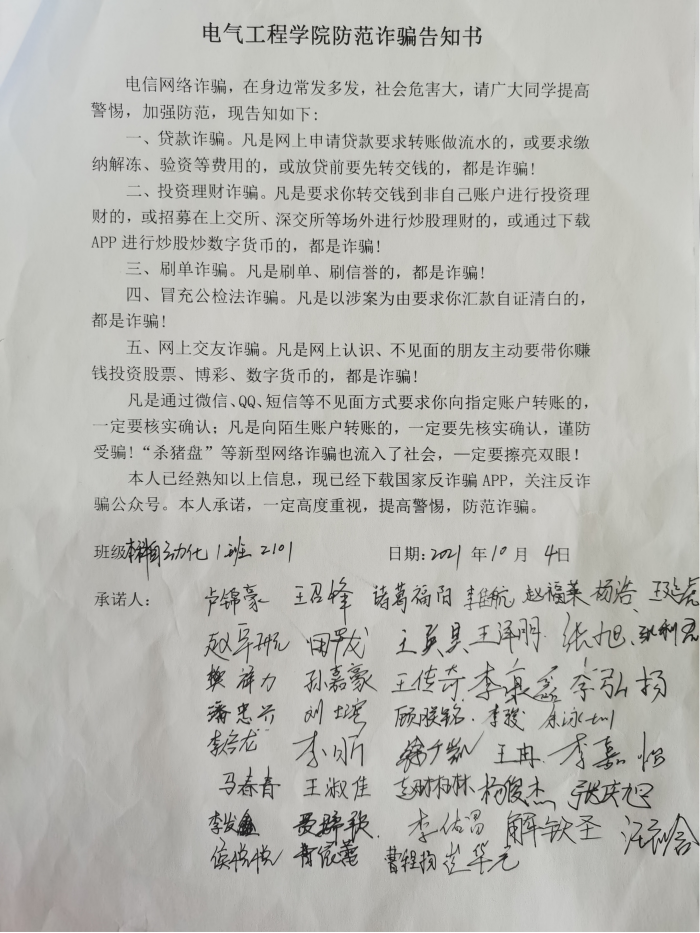 电气工程学院防范诈骗告知书
电信网络诈骗，在身边常发多发，社会危害大，请广大同学提高
警惕，加强防范，现告知如下：
一、贷款诈骗。凡是网上申请贷款要求转账做流水的，或要求缴
纳解冻、验资等费用的，或放贷前要先转交钱的，都是诈骗！
二、投资理财诈骗。凡是要求你转交钱到非自己账户进行投资理
财的，或招募在上交所、深交所等场外进行炒股理财的，或通过下载
APP 进行炒股炒数字货币的，都是诈骗！
三、刷单诈骗。凡是刷单、刷信誉的，都是诈骗！
四、冒充公检法诈骗。凡是以涉案为由要求你汇款自证清白的，
都是诈骗！
五、网上交友诈骗。凡是网上认识、不见面的朋友主动要带你赚
钱投资股票、博彩、数字货币的，都是诈骗！
凡是通过微信、QQ、短信等不见面方式要求你向指定账户转账的，
一定要核实确认；凡是向陌生账户转账的，一定要先核实确认，谨防
受骗！“杀猪盘”等新型网络诈骗也流入了社会，一定要擦亮双眼！
本人已经熟知以上信息，现已经下载国家反诈骗 APP，关注反诈
骗公众号。本人承诺，一定高度重视，提高警惕，防范诈骗。
班级 自动化 1班 2101 日期：2021 年 10 月 4日
承诺人： 卢锦豪 王召峰 诸葛福阳 李继航 赵福莱 杨浩
王英具 王泽朋 张旭
樊祥力 孙嘉豪 王传奇 李康鑫 李弘扬
潘忠兴 李骏
李培龙 李昕 王冉 李嘉怡
马春春 王淑佳 杨俊杰 张庆旭
李发鑫 李佑昌 解钦圣
侯悦悦 曹程扬 崔华元